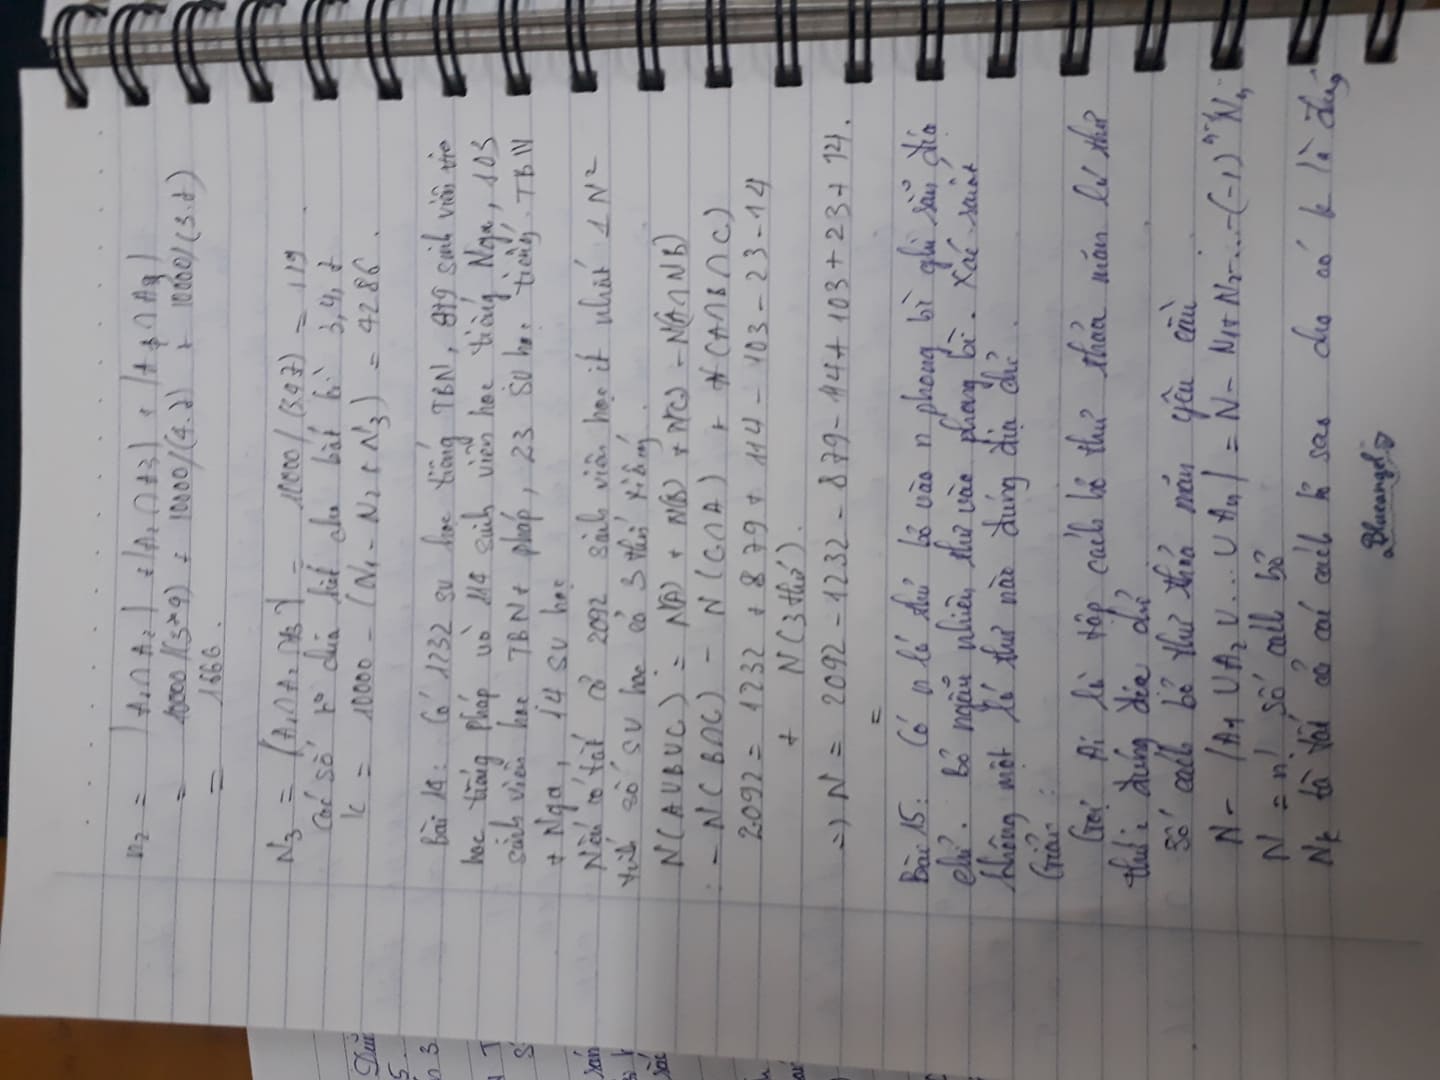 N₂ = |A₁∩A₂| + |A₂∩A3| + |A1∩A3|
= 10000/(3*4) + 10000/(4.7) + 10000/(3.7)
= 1666.
N3 = |A₁∩A₂∩A3| = 10000/(3.4.7) = 119
Các số ko chia hết cho bất kì 3,4,7
K = 10000 - (N₁ - N₂ + N3) = 4286.
Bài 14: Có 1232 sv học tiếng TBN, 879 sinh viên
học tiếng Pháp và 114 sinh viên học tiếng Nga, 103
sinh viên học TBN + pháp, 23 SV học tiếng TBN
+ Nga, 14 SV học
Nếu có tất cả 2092 sinh viên học ít nhất 1 N²
tính số SV học cả 3 thứ tiếng.
N(AUBUC) = N(A) + N(B) + N(C) - N(A∩B)
- N(B∩C) - N(C∩A) + N(A∩B∩C)
2092 = 1232 + 879 + 114 - 103 - 23 - 14
+ N(3 thứ).
=) N = 2092 - 1232 - 879 - 114 + 103 + 23 + 14.
=
Bài 15: Có n lá thư bỏ vào n phong bì ghi sẵn địa
chỉ. Bỏ ngẫu nhiên thư vào phong bì. Xác suất
không một lá thư nào đúng địa chỉ.
Giải:
Gọi Ai là tập cách bỏ thư thỏa mãn lá thư
thứ i đúng địa chỉ
Số cách bỏ thư thỏa mãn yêu cầu
N - |A1 ∪ A₂ ∪ ... ∪ An| = N - N1 + N₂ - ... (-1)ⁿ Nn
N = n! số cách bỏ
Nk là tất cả các cách bỏ sao cho có k lá đúng